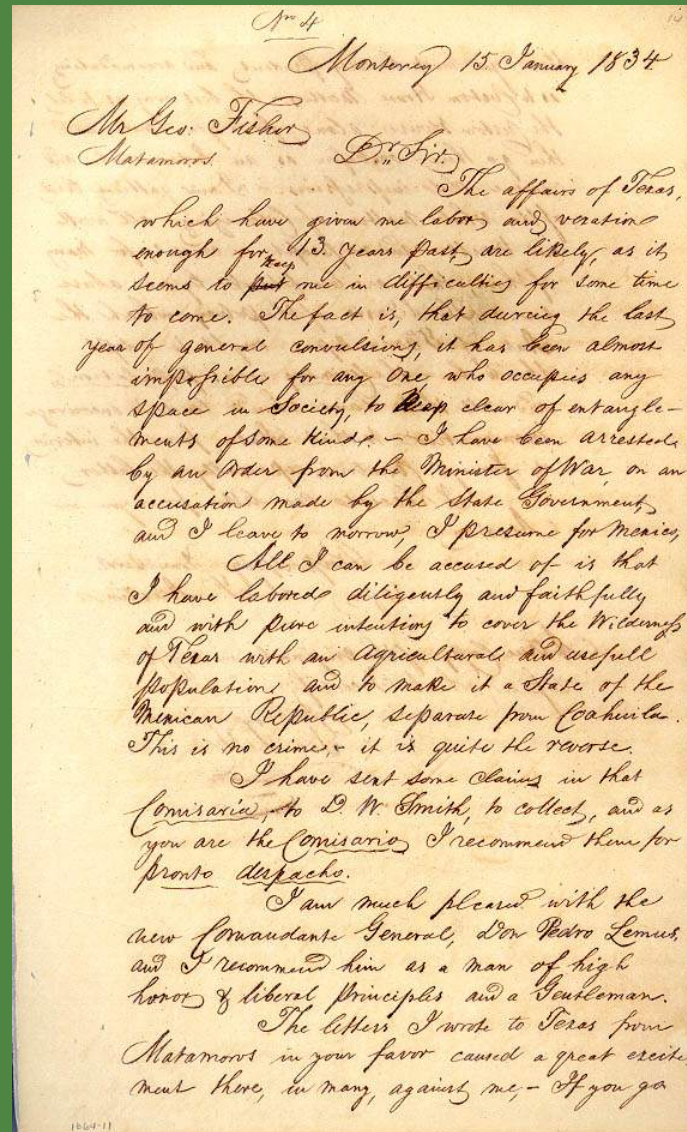 No 4
14
Monterey 15 January 1834
Mr Geo: Fisher
Matamoros. Dr,, Sir,
The affairs of Texas,
which have given me labor and vexation
enough for 13 years past, are likely, as it
seems to put keep me in difficulties for some time
to come. The fact is, that dureing the last
year of general convulsions, it has been almost
impossible for any one, who occupies any
space in Society, to keep clear of entangle-
ments of some kind. – I have been arrested
by an order from the Minister of War, on an
accusation made by the State Government,
and I leave to morrow, I presume for Mexico,
All I can be accused of is that
I have labored diligently and faithfully
and with pure intentions to cover the Wilderness
of Texas with an Agricultural and usefull
population and to make it a State of the
Mexican Republic, separate from Coahuila.
This is no crime, – it is quite the reverse.
I have sent some claims in that
Comisaria, to D. W. Smith, to collect, and as
you are the Comisario I recommend them for
pronto despacho.
I am much pleased with the
new Comandante General, Don Pedro Lemus,
and I recommend him as a man of high
honor & liberal principles and a Gentleman.
The letters I wrote to Texas from
Matamoros in your favor caused a great excite
ment there, in many, against me, – If you go
1664-11